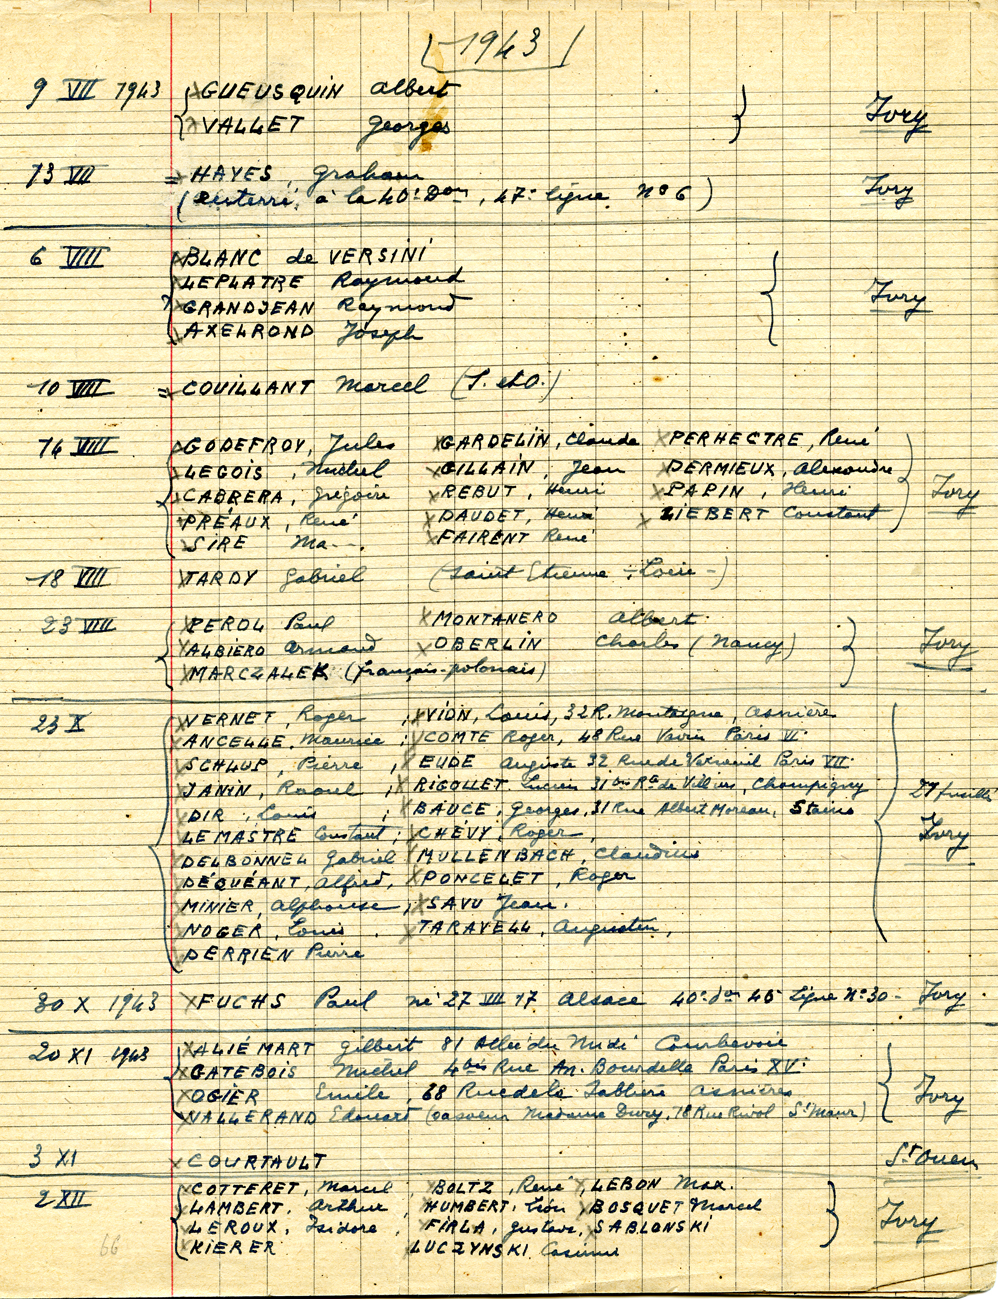 1943
9 VII 1943 GUEUSQUIN Albert
VALLET Georges Ivry
13 VII = HAYES, Graham
(enterré à la 40e Don, 47e ligne N° 6) Ivry
6 VIII BLANC de VERSINI
LEPLATRE Raymond
GRANDJEAN Raymond Ivry
AXELROND Joseph
10 VIII = COUILLANT Marcel (S. et O.)
14 VIII GODEFROY, Jules GARDELIN, Claude PERHECTRE, René
LEGOIS, Michel GILLAIN, Jean DERMIEUX, Alexandre
CABRERA, Grégoire REBUT, Henri PAPIN, Henri Ivry
PRÉAUX, René DAUDET, Henri LIEBERT Constant
SIRE Ma--. FAIRENT René
18 VIII TARDY Gabriel (Saint Etienne - Loire -)
23 VIII PEROL Paul MONTANERO Albert
ALBIERO Armand OBERLIN Charles (Nancy) Ivry
MARCZALEK (français-polonais)
23 X VERNET, Roger ; VION, Louis, 32 R. Montaigne, Asnières
ANCELLE, Maurice ; COMTE Roger, 48 Rue Vavin Paris VI.
SCHLUP, Pierre, EUDE Auguste 32 Rue de Verneuil Paris VII.
JANIN, Raoul ; RIGOLLET Lucien 31bis Rte de Villiers, Champigny 21 fusillés
DIR, Louis ; BAUCE, Georges, 31 Rue Albert Moreau, Stains
LEMASTRE Constant ; CHEVY, Roger, Ivry
DELBONNEL Gabriel MULLENBACH, Claudius
DÉQUÉANT, Alfred, PONCELET, Roger
MINIER, Alphonse, SAVU Jean.
NOGER, Louis. TARAVELL, Augustin,
DERRIEN Pierre
30 X 1943 FUCHS Paul né 27 VIII 17 Alsace 40e don 45 Ligne N° 30 - Ivry.
20 XI 1943 ALIÉMART Gilbert 81 Allée du Midi Courbevoie
GATEBOIS Michel 4bis Rue An. Bourdelle Paris XV.
OGIER Emile, 68 Rue de la Sablière Asnières Ivry
VALLERAND Edouart (sa soeur Madame 78 Rue Rivol St Maur)
3 XI COURTAULT St Ouen
2 XII COTTERET, Marcel, BOLTZ, René, LEBON Max.
LAMBERT, Arthur, HUMBERT, Léon BOSQUET Marcel
LEROUX, Isidore, FIRLA, Gustave, SABLONSKI Ivry
KIERER LUCZYNSKI Casimir
66